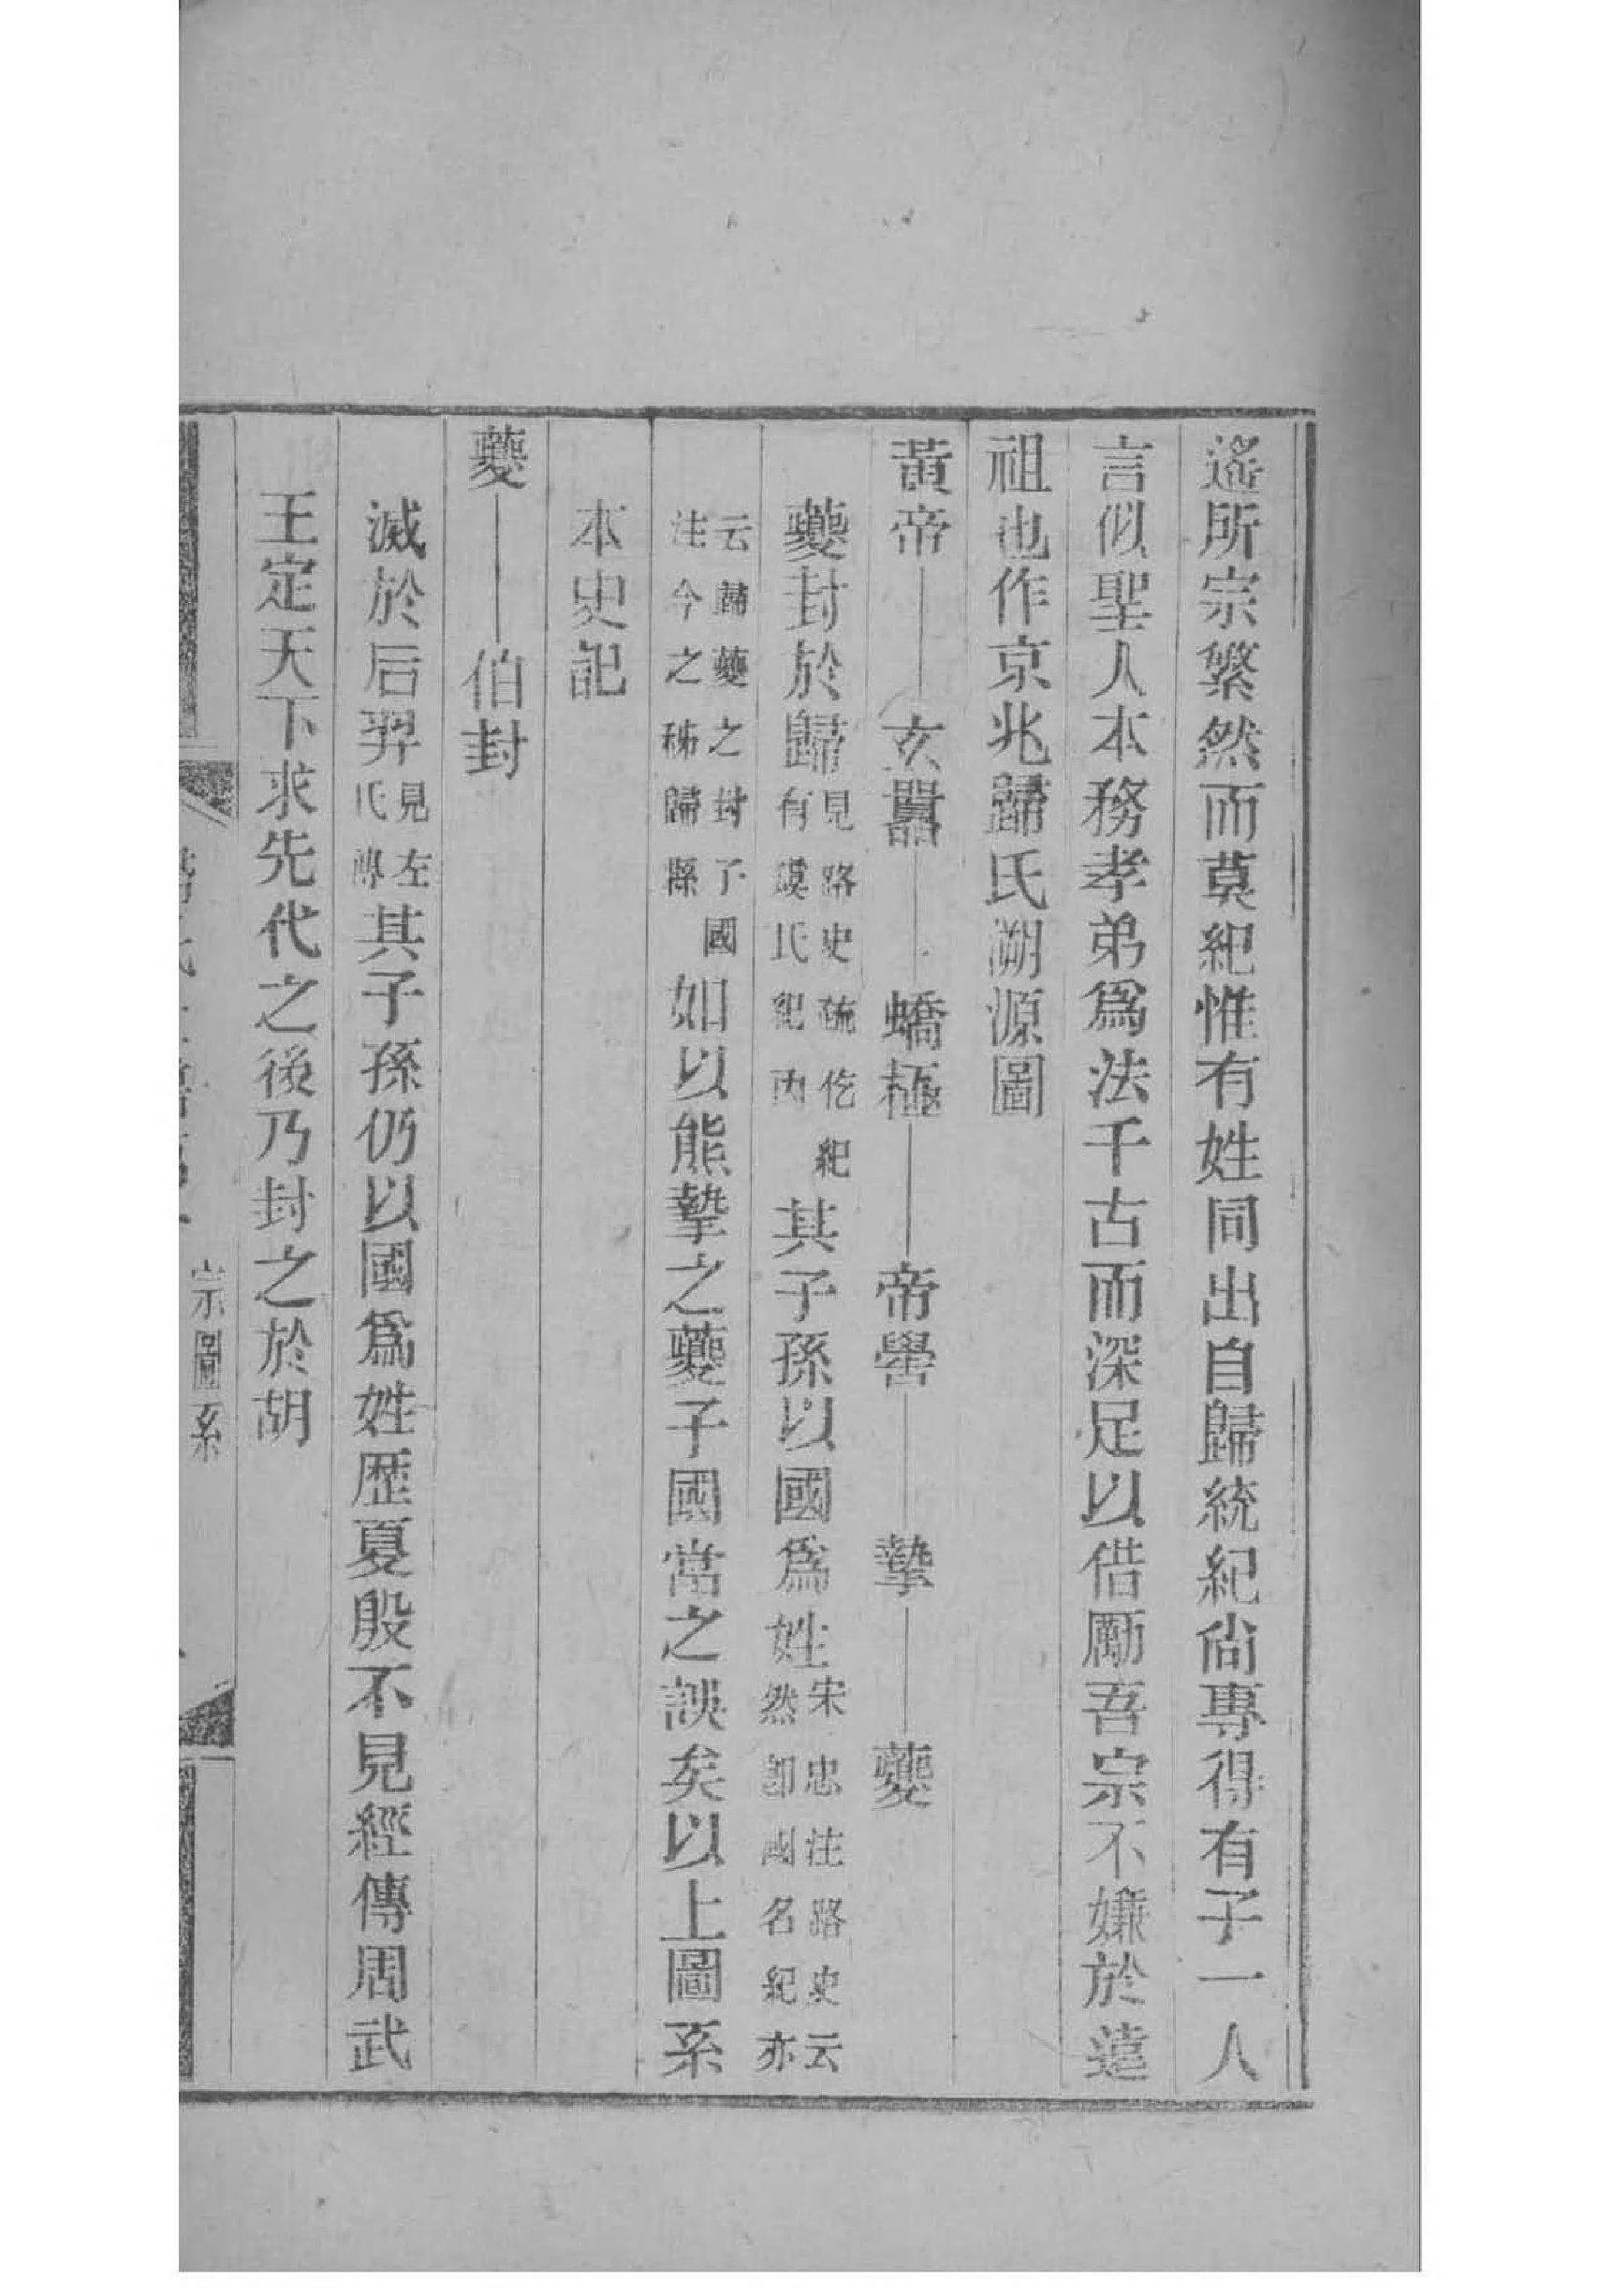 遙所宗繁然而莫紀惟有姓同出自歸統紀尙專得有子一人
言似聖人本務孝弟爲法千古而深足以借勵吾宗不嫌於遠
祖也作京兆歸氏溯源圖
黃帝——玄囂——蟜極——帝嚳——摯——夔
夔封於歸見路史疏仡紀有虞氏紀內其子孫以國爲姓宋忠注路史云然卽國名紀亦
云歸夔之封子國注今之秭歸縣如以熊摯之夔子國當之誤矣以上圖系
本史記
夔——伯封
滅於后羿見左氏傳其子孫仍以國爲姓歷夏殷不見經傳周武
王定天下求先代之後乃封之於胡
宗圖系